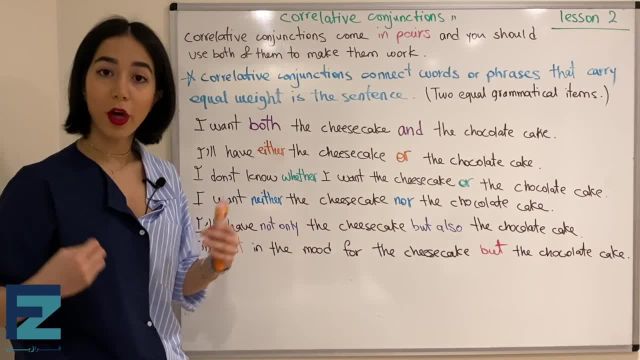 correlative conjunctions "
lesson 2
correlative conjunctions come in pairs and you should
use both of them to make them work.
* correlative conjunctions connect words or phrases that carry
equal weight is the sentence. (Two equal grammatical items.)
I want both the cheesecake and the chocolate cake.
I'll have either the cheesecake or the chocolate cake.
I don't know whether I want the cheesecake or the chocolate cake.
I want neither the cheesecake nor the chocolate cake.
have not only the cheesecake but also the chocolate cake.
in the mood for the cheesecake but the chocolate cake.
EZ